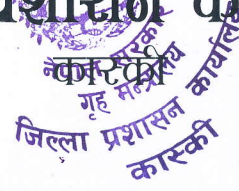 प्रशासन का
कास्की
नेपाल सरकार
गृह मन्त्रालय
जिल्ला प्रशासन कार्यालय
कास्की